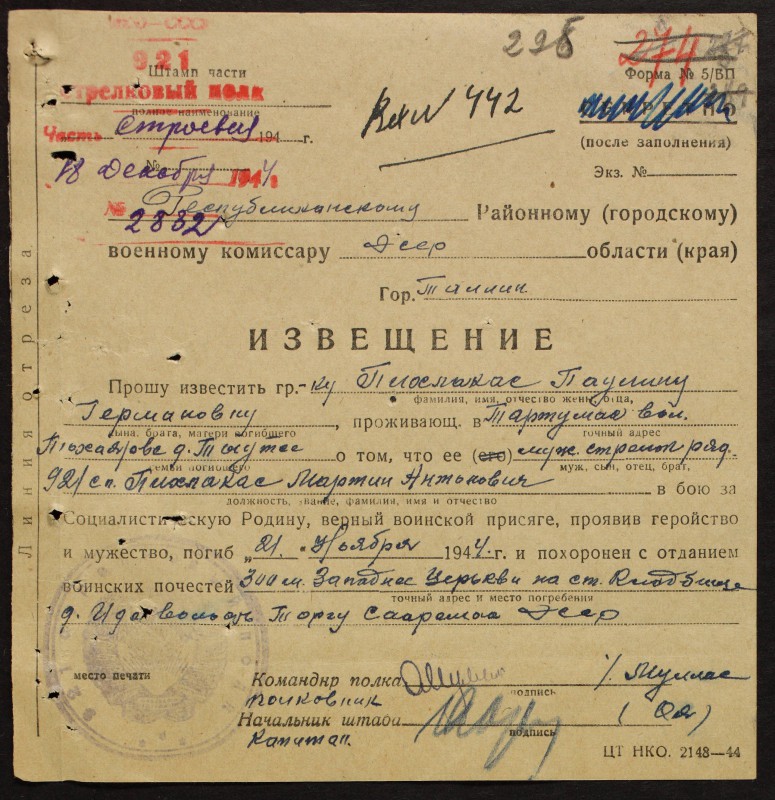 НКО-СССР
225
274
921
Штамп части
Форма № 5/ВП
Стрелковый полк
полное наименование
Вх № 442
Часть Строевая 194 г.
(после заполнения)
18 Декабря 1944
№
Экз. №
№ 2882
Республиканскому Районному (городскому)
военному комиссару Эсср области (края)
Гор. Таллин
Линия отреза
ИЗВЕЩЕНИЕ
Прошу известить гр.-ку Пихлакас Паулину
фамилия, имя, отчество жены, отца,
Германовну, проживающ. в Тартумас вол.
сына, брата, матери погибшего
точный адрес
д. о том, что ее (его) муж стрелок ряд.
семьи погибшего
муж, сын, отец, брат,
921 сп. Пихлакас Мартин Антонович в бою за
должность, звание, фамилия, имя и отчество
Социалистическую Родину, верный воинской присяге, проявив геройство
и мужество, погиб „21" Ноября 1944 г. и похоронен с отданием
воинских почестей 300 м. Западнее Церькви на ст. Кладбище
точный адрес и место погребения
д. Иде волость Торгу Сааремаа Эсср
место печати
Командир полка /. Муллас
подпись
полковник
Начальник штаба ( Оя )
подпись
Капитан.
ЦТ НКО. 2148—44